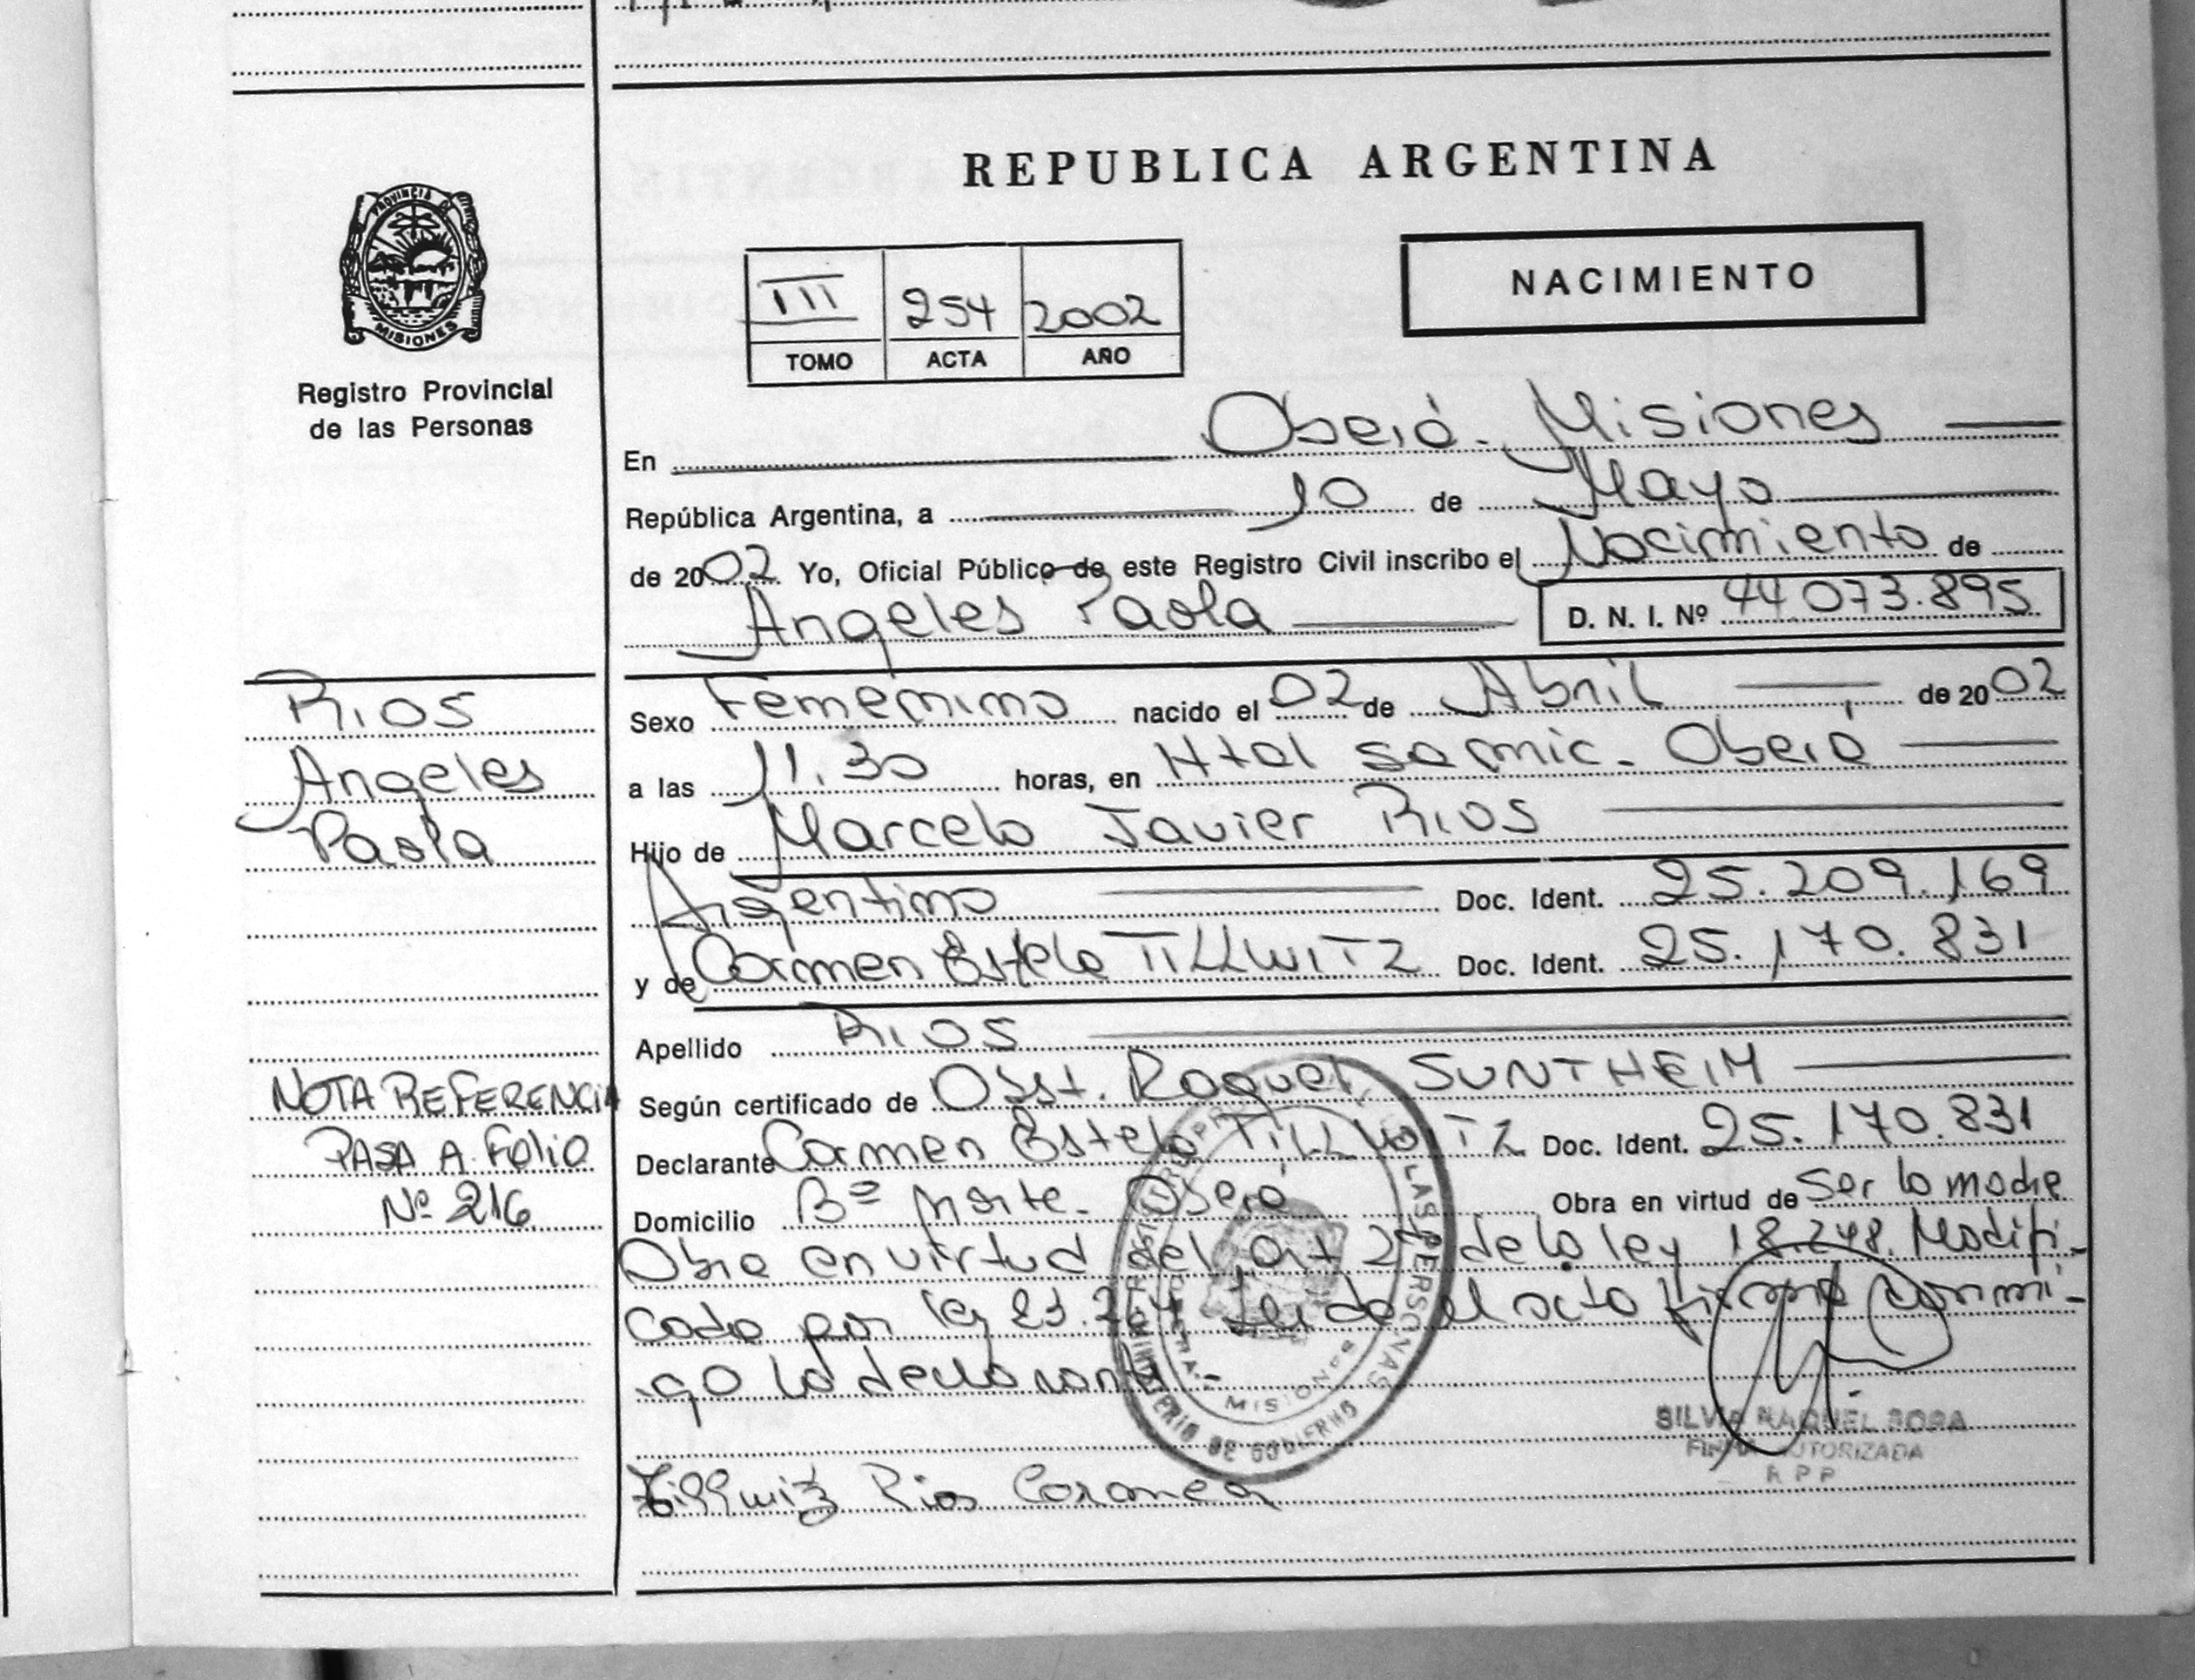 REPUBLICA ARGENTINA
PROVINCIA DE
MISIONES
Registro Provincial
de las Personas
III 254 2002
TOMO ACTA AÑO
NACIMIENTO
En Oberá - Misiones
República Argentina, a 10 de Mayo
de 2002 Yo, Oficial Público de este Registro Civil inscribo el Nacimiento de
Angeles Paola D. N. I. Nº 44 073.895
RIOS
Angeles
Paola
Sexo Femenino nacido el 02 de Abril de 2002
a las 11.30 horas, en Htal Samic - Oberá
Hijo de Marcelo Javier RIOS
Argentino Doc. Ident. 25.209.169
y de Carmen Estela TILLWITZ Doc. Ident. 25.170.831
Apellido RIOS
NOTA REFERENCIA
PASA A FOLIO
Nº 216
Según certificado de Obst. Raquel SUNTHEIM
Declarante Carmen Estela TILLWITZ Doc. Ident. 25.170.831
Domicilio Bº Norte - Oberá Obra en virtud de Ser la madre
Obra en virtud del art 2º de la ley 18.248. Modifi-
cada por ley 23.264 Leida el acta firma conmi-
go la declarante -
LAS PERSONAS
MISIONES
MINISTERIO DE GOBIERNO
SILVIA RAQUEL SOSA
FIRMA AUTORIZADA
R P P
Tillwitz Rios Carmen